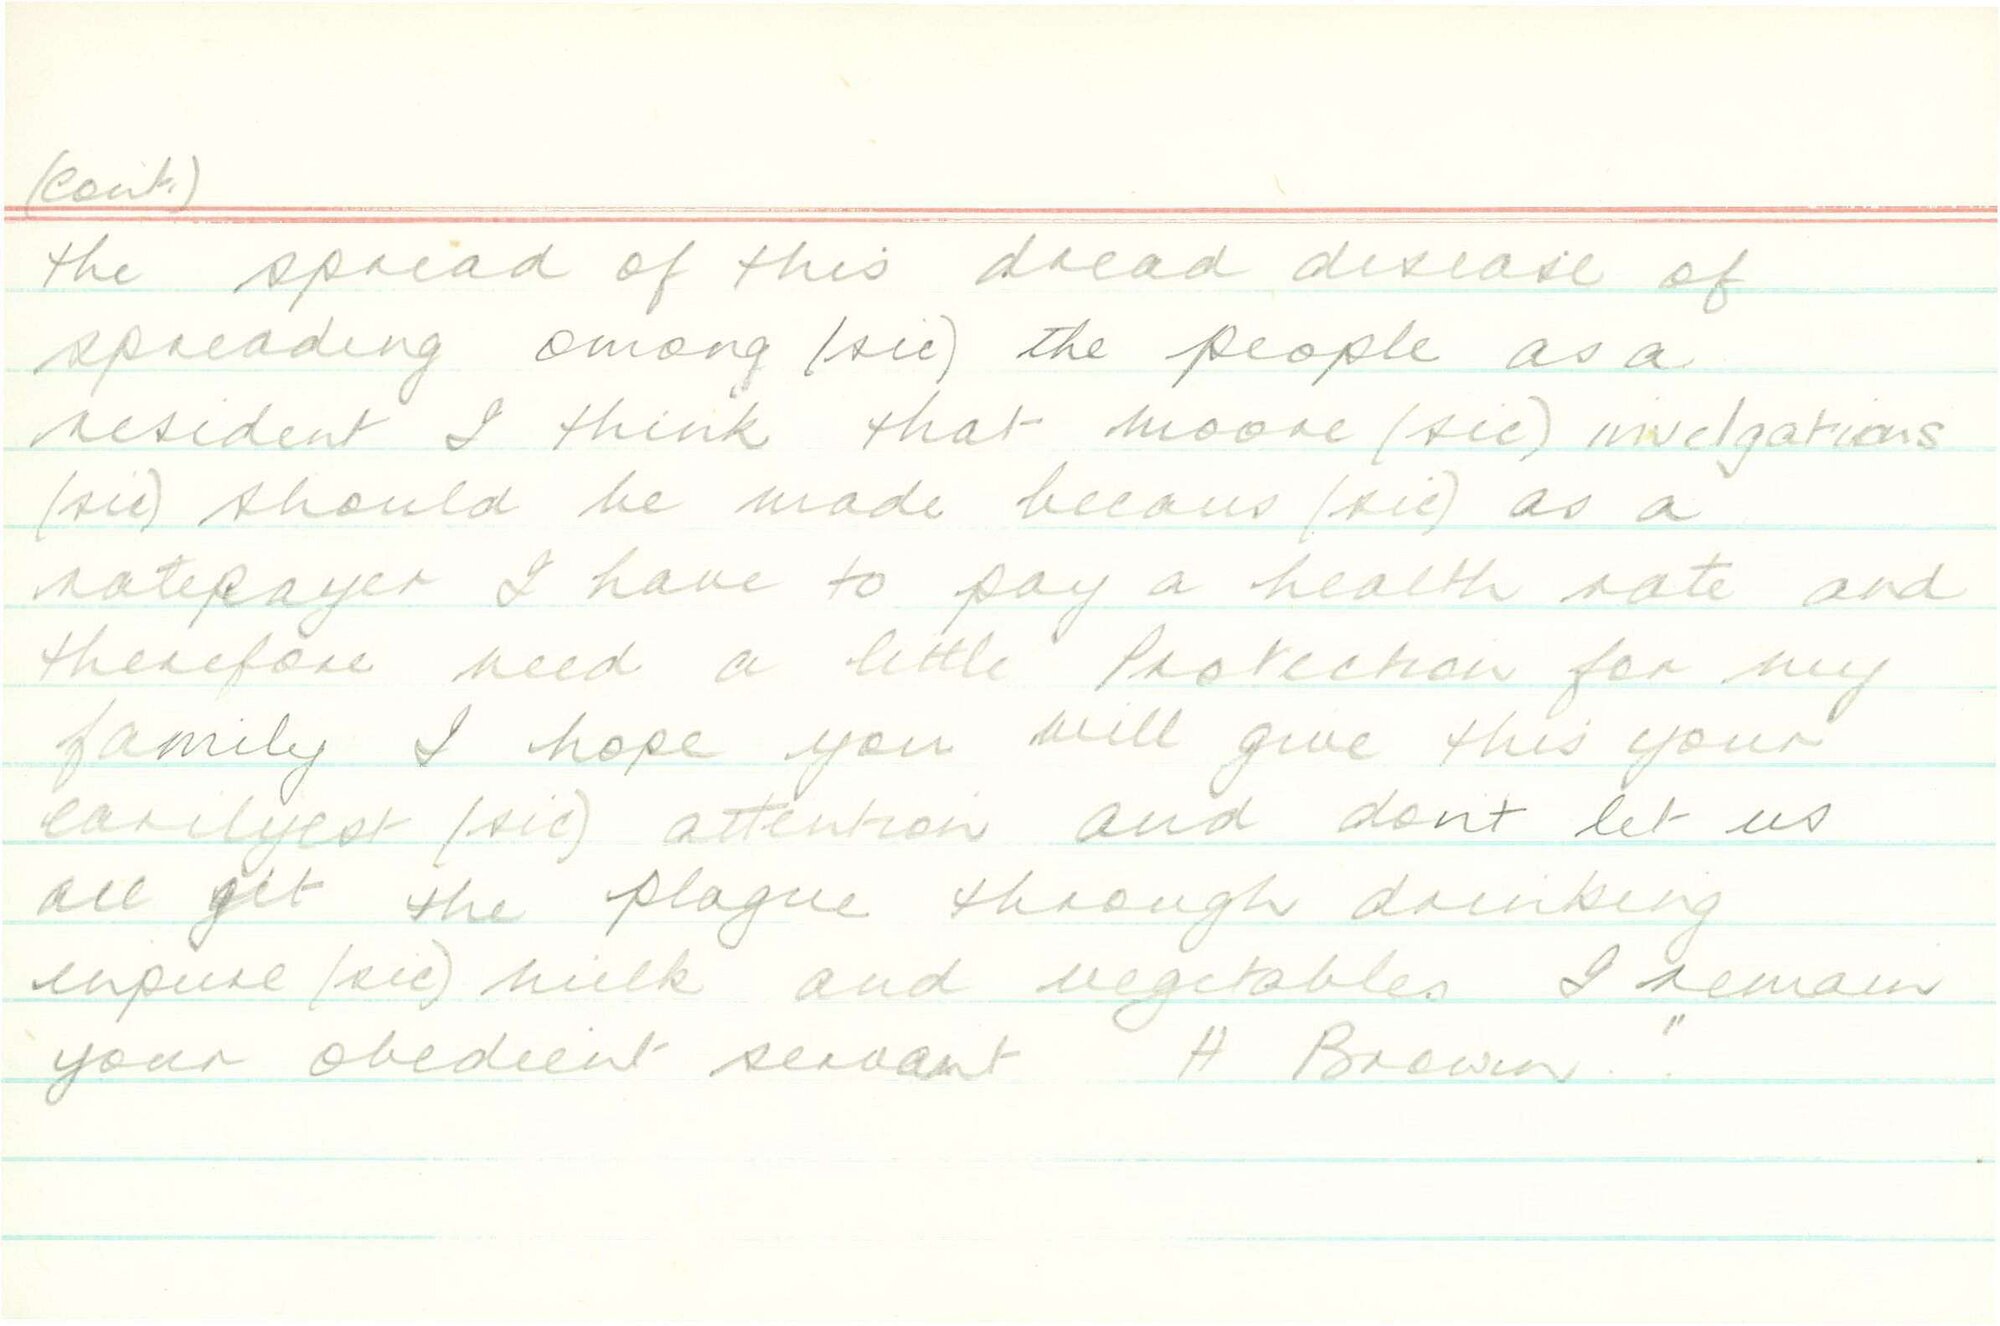 (Cont.)
the spread of this dread disease of
spreading omong (sic) the people as a
resident I think that moore (sic) invelgations
(sic) should be made becaus (sic) as a
ratepayer I have to pay a health rate and
therefore need a little Protection for my
family I hope you will give this your
earilyest (sic) attention and dont let us
all get the plague through drinking
inpure (sic) milk and vegetables I remain
your obedient servant H Brown."